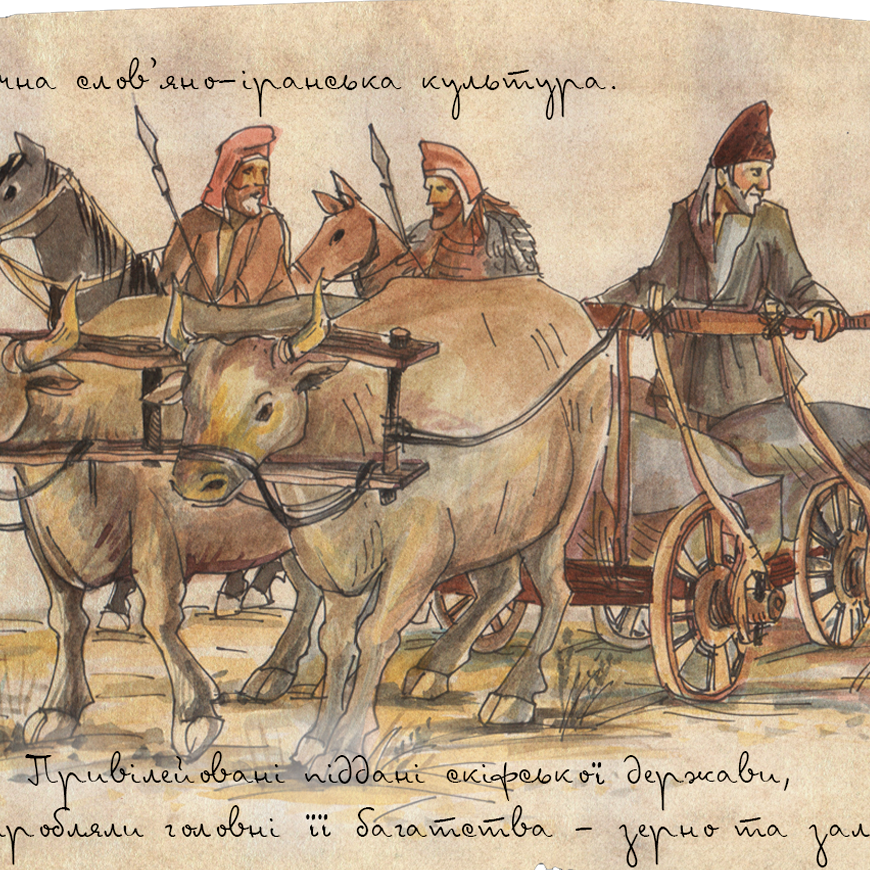 чна слов'яно-іранська культура.
Привілейовані піддані скіфської держави,
робляли головні її багатства - зерно та зал